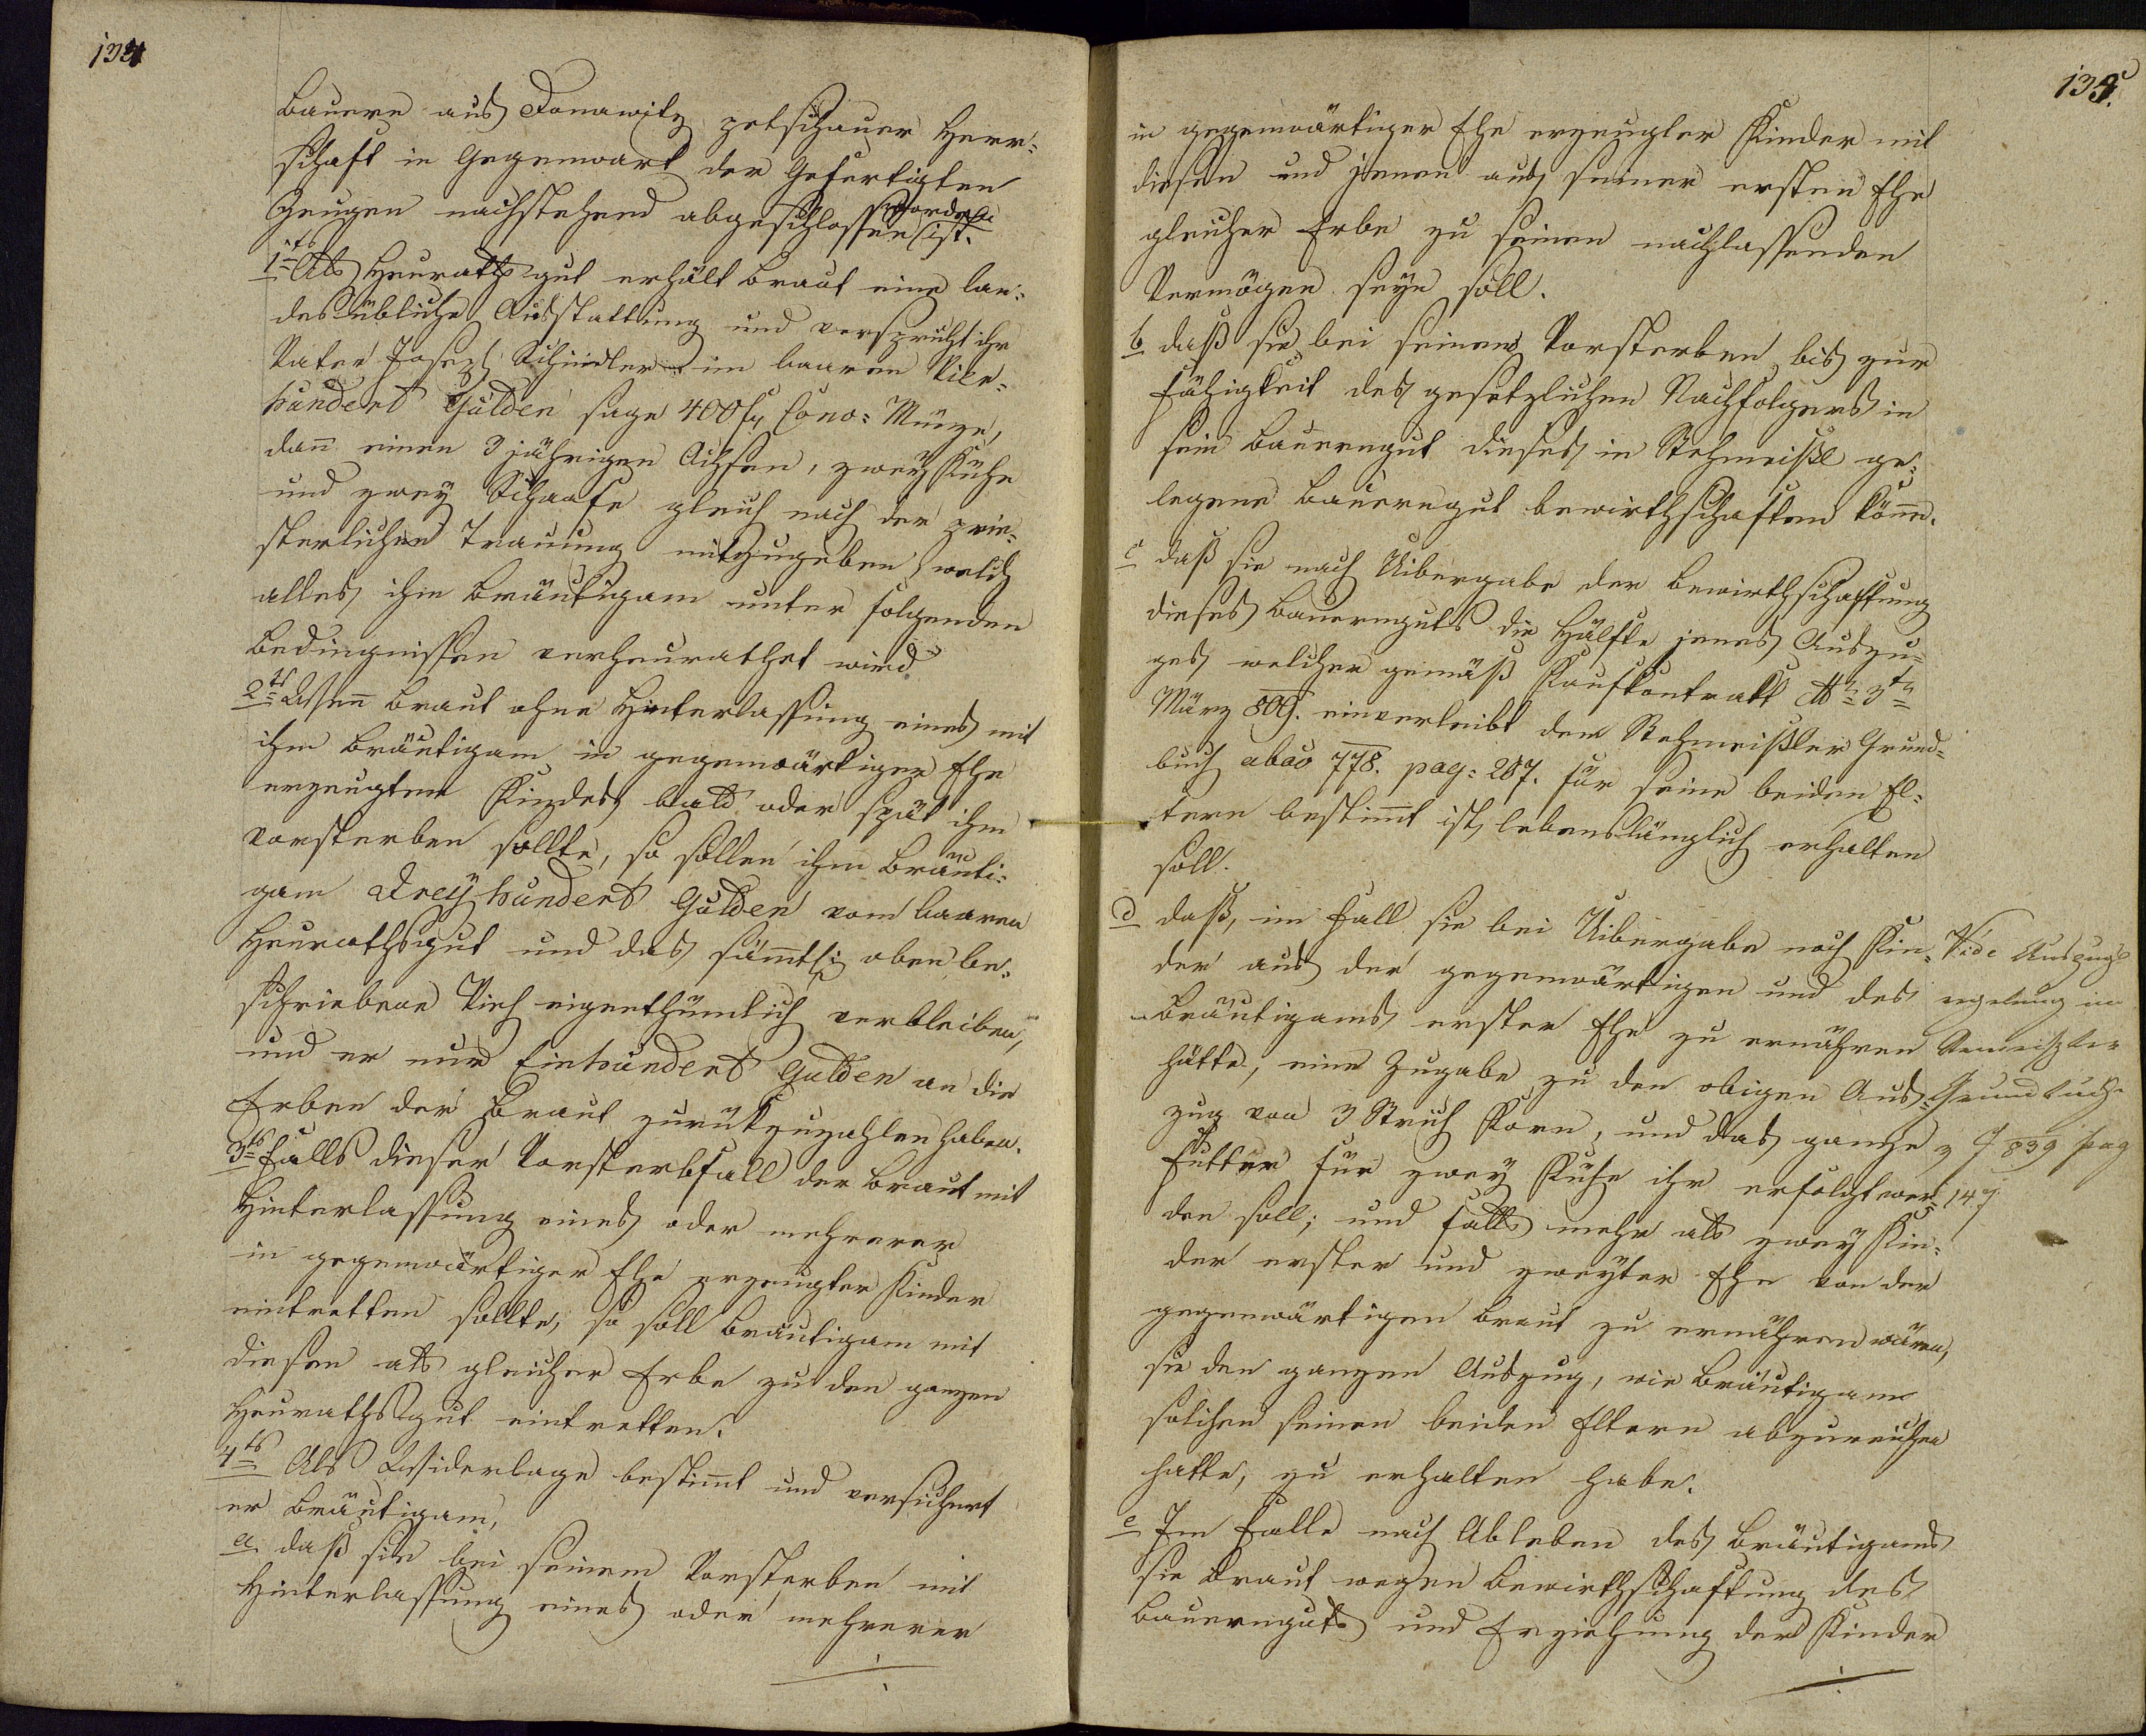 134
Bauern aus Donawitz petschauer Herr-
schaft in Gegenwart der Gefertigten
Zeugen nachstehend abgeschlossen worden ist.
1tns Als Heurathsgut erhält Braut eine lan-
desübliche Ausstattung und verspricht ihr
Vater Joseph Schindler im baaren Vier-
hundert Gulden sage 400 fl Conv: Münze,
dann einen 3 jährigen Ochsen, zwey Kühe
und zwey Schaafe gleich nach der prie-
sterlichen Trauung mitzugeben welch
alles ihm Bräutigam unter folgenden
Bedingnissen verheurathet wird
2ts Wenn Braut ohne Hinterlassung eines mit
ihm Bräutigam in gegenwärtiger Ehe
erzeugten Kindes bald oder spät ihm
vorsterben sollte, so sollen ihm Bräuti-
gam Dreyhundert Gulden vom baaren
Heurathsgut und das sämtl: oben be-
schriebene Vieh eigenthümlich verbleiben,
und er nur Einhundert Gulden an die
Erben der Braut zurückzuzahlen haben.
3ts Falls dieser Vorsterbfall der Braut mit
Hinterlassung eines oder mehrerer
in gegenwärtiger Ehe erzeugter Kinder
eintretten sollte, so soll Bräutigam mit
diesen als gleicher Erbe zu den ganzen
Heurathsgut eintretten.
4ts Als Widerlage bestimt und versichert
er Bräutigam,
a. daß sie bei seinem Vorsterben mit
Hinterlassung eines oder mehrerer
135.
in gegenwärtiger Ehe erzeugter Kinder mit
diesen und jenen aus seiner ersten Ehe
gleicher Erbe zu seinen nachlassenden
Vermögen seyn soll.
b daß sie bei seinem Vorsterben bis zur
Fähigkeit des gesetzlichen Nachfolgers in
sein Bauerngut dieses in Stehmeißl ge-
legene Bauerngut bewirthschaften könne.
c daß sie nach Uibergabe der Bewirthschaftung
dieses Bauernguts die Hälfte jenes Auszu-
ges welcher gemäß Kaufkontrakt dto 3tn
März 809. einverleibt dem Stehmeißler Grund-
buch abao 778. pag: 287. für seine beiden El-
tern bestimt ist, lebenslänglich erhalten
soll.
d daß, im Fall sie bei Uibergabe noch Kin-
der aus der gegenwärtigen und des
Bräutigams erster Ehe zu ernähren
hätte, eine Zugabe zu den obigen Aus-
zug von 3 Strich Korn, und das ganze
Futter für zwey Kühe ihr erfolgt wer-
den soll; und falls mehr als zwey Kin-
der erster und zweyter Ehe von der
gegenwärtigen Braut zu ernähren wären,
sie den ganzen Auszug, wie Bräutigam
solchen seinen beiden Eltern abzureichen
hatte, zu erhalten habe.
e Im Falle nach Ableben des Bräutigams
sie Braut wegen Bewirthschaftung des
Bauernguts und Erziehung der Kinder
Vide Auszugs
regelung im
Grundbuche
839 pag
147